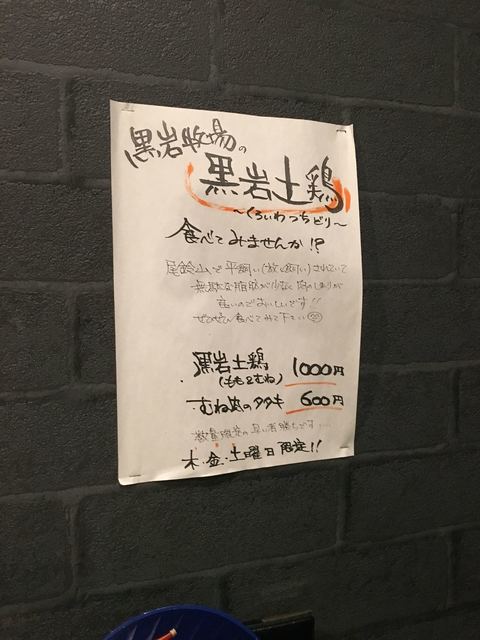 黒岩牧場の
黒岩土鶏
～くろいわつちどり～
食べてみませんか!?
尾鈴山で平飼い(放し飼い)されていて
無駄な脂肪が少なく肉のしまりが
良いのでおいしいです!!
ぜひぜひ食べてみて下さい
黒岩土鶏 1000円
(もも&むね)
むね肉のタタキ 600円
数量限定の早い者勝ちです…
木・金・土曜日限定!!